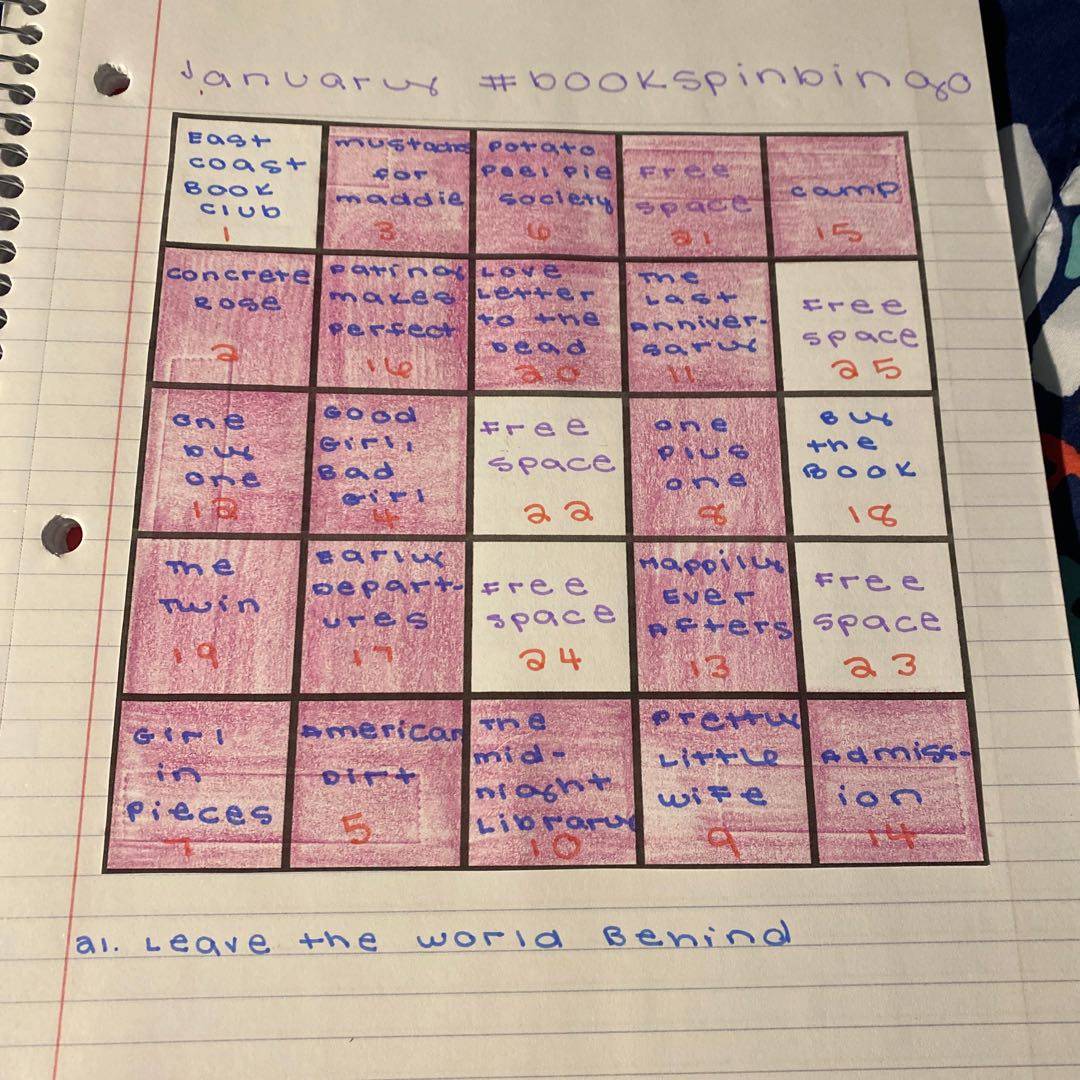 January #bookspinbingo
East
coast
Book
club
1
mustache
for
maddie
3
Potato
Peel pie
society
6
Free
space
21
camp
15
concrete
Rose
2
Dating
makes
perfect
16
Love
Letter
to the
Dead
20
The
Last
Anniver-
sary
11
Free
space
25
one
by
one
12
Good
Girl,
Bad
Girl
4
Free
space
22
one
plus
one
8
By
the
Book
18
The
Twin
19
Early
Depart-
ures
17
Free
space
24
Happily
Ever
Afters
13
Free
space
23
Girl
in
Pieces
7
American
Dirt
5
The
mid-
night
Library
10
Pretty
Little
wife
9
Admiss-
ion
14
21. Leave the world Behind